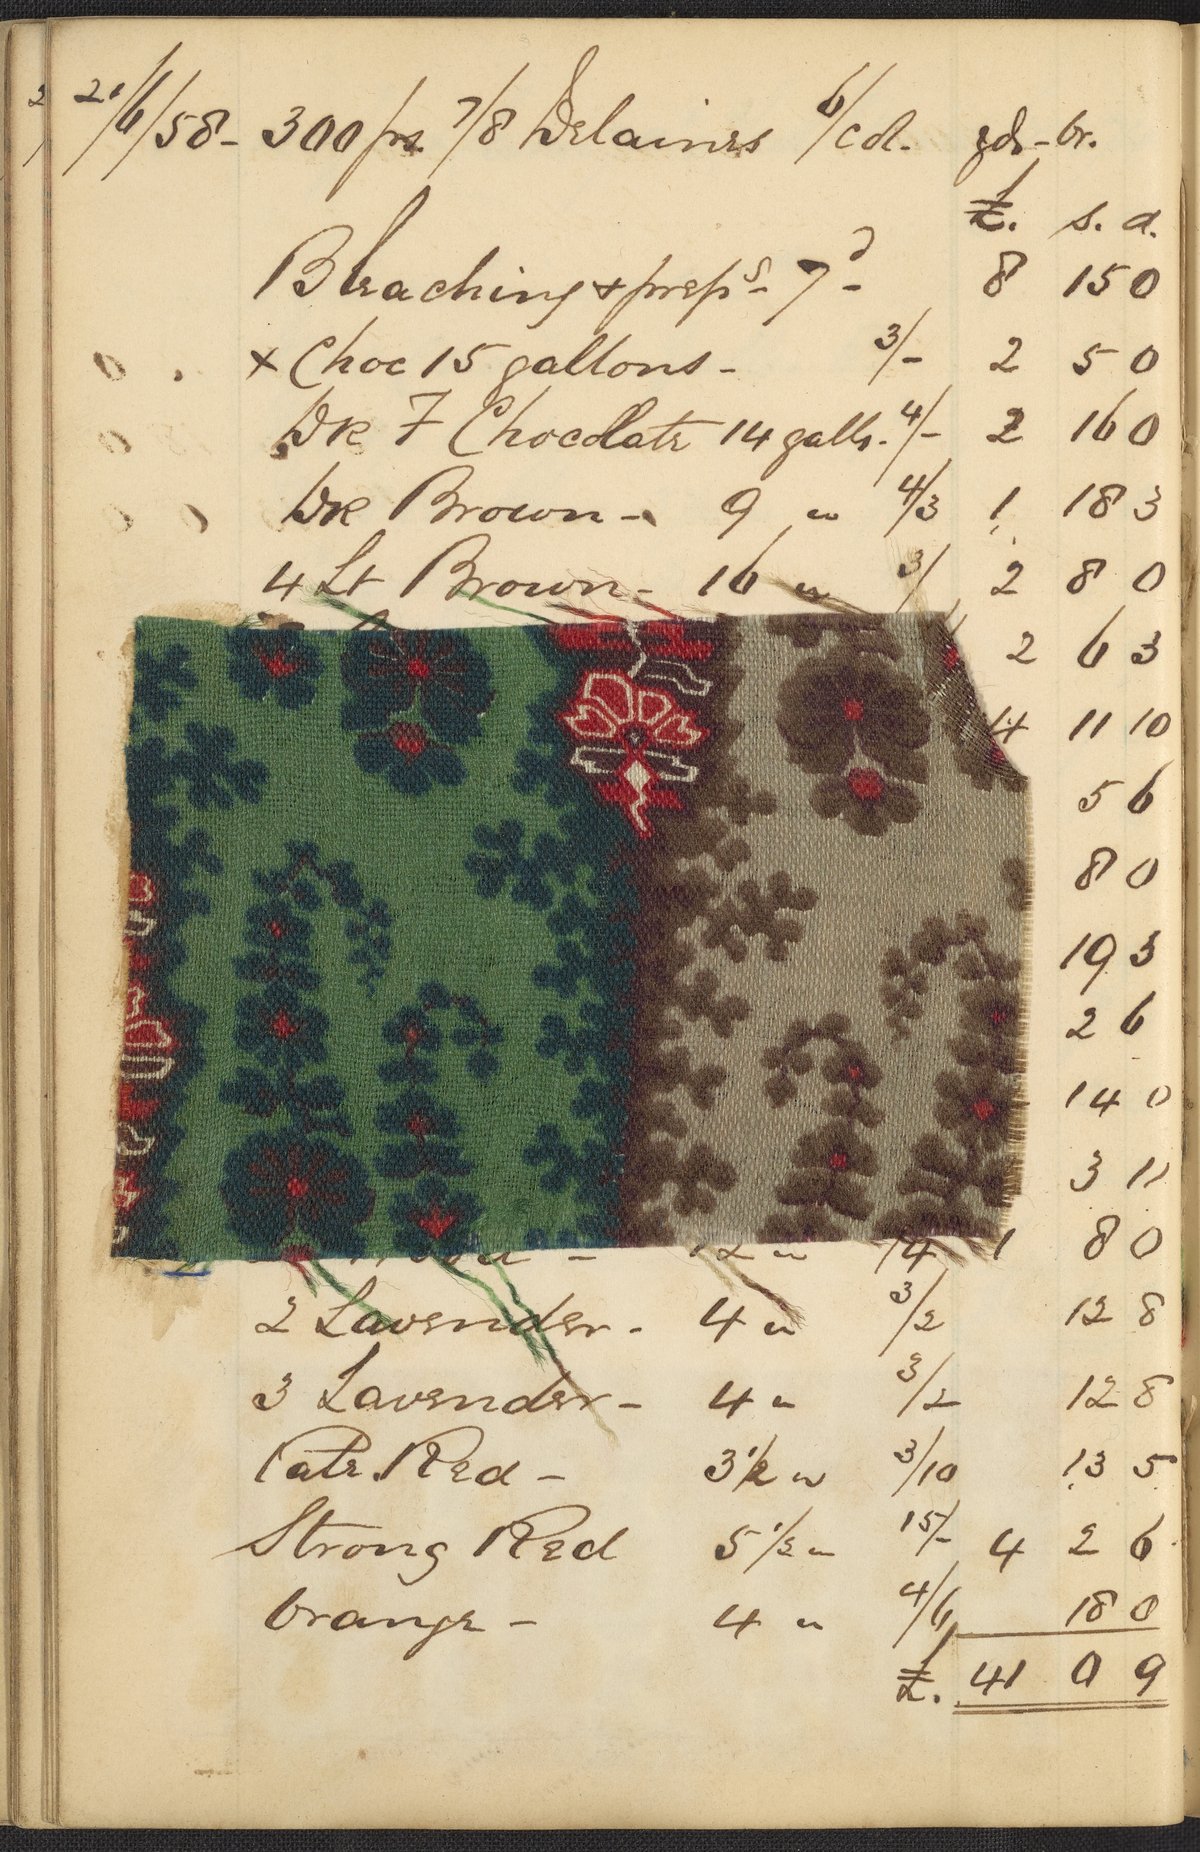 21/6/58 - 300 ps. 7/8 Delaines 6/col. gds - br.
£. s. d.
Bleaching & preps - 7d - 8 15 0
x Choc 15 gallons - 3/- 2 5 0
Dk F Chocolate 14 galls. 4/- 2 16 0
Dk Brown - 9 " 4/3 1 18 3
4 Lt Brown - 16 " 3/ 2 8 0
2 6 3
4 11 10
5 6
8 0
19 3
2 6
14 0
3 11
12 " /4 1 8 0
2 Lavender - 4 " 3/2 12 8
3 Lavender - 4 " 3/2 12 8
Pale Red - 3 1/2 " 3/10 13 5
Strong Red 5 1/2 " 15/- 4 2 6
Orange - 4 " 4/6 18 0
£. 41 0 9